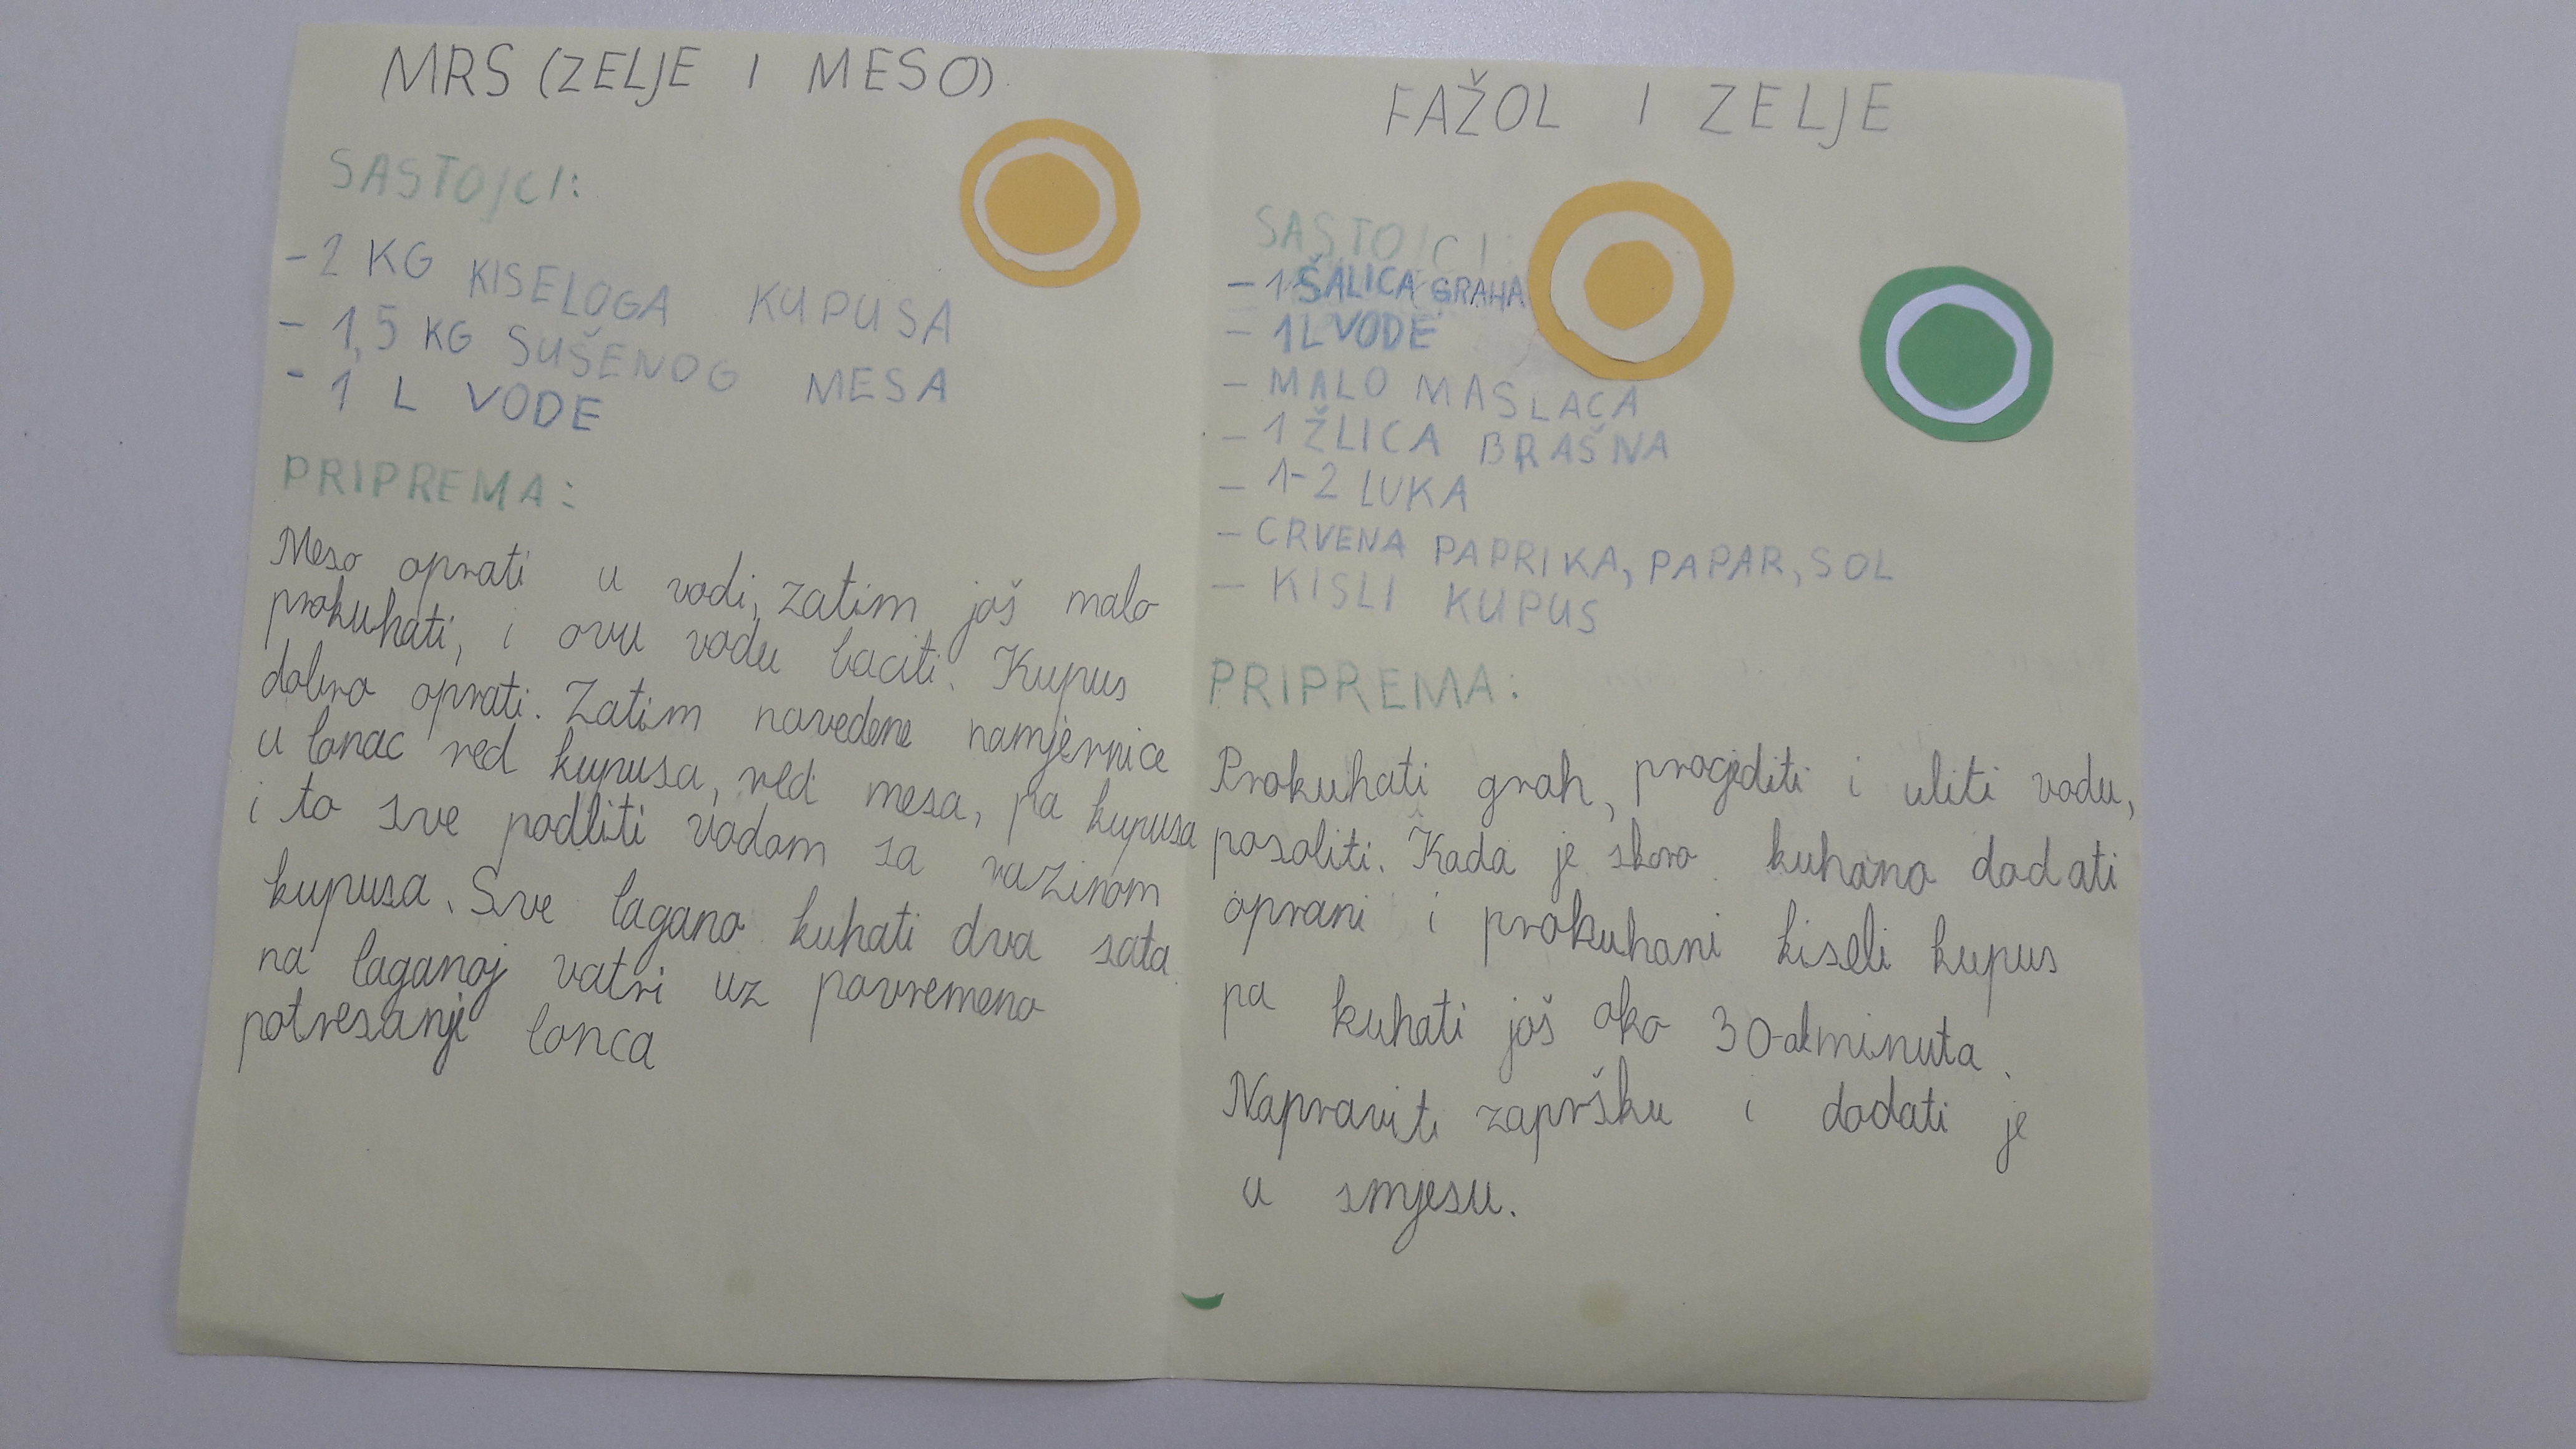 MRS (ZELJE I MESO)
SASTOJCI:
- 2 KG KISELOGA KUPUSA
- 1,5 KG SUŠENOG MESA
- 1 L VODE
PRIPREMA:
Meso oprati u vodi, zatim još malo
prokuhati, i ovu vodu baciti. Kupus
dobro oprati. Zatim navedene namjernice
u lonac red kupusa, red mesa, pa kupusa
i to sve podliti vodom sa razinom
kupusa. Sve lagano kuhati dva sata
na laganoj vatri uz povremeno
potresanje lonca
FAŽOL I ZELJE
SASTOJCI:
- 1 ŠALICA GRAHA
- 1L VODE
- MALO MASLACA
- 1 ŽLICA BRAŠNA
- 1-2 LUKA
- CRVENA PAPRIKA, PAPAR, SOL
- KISLI KUPUS
PRIPREMA:
Prokuhati grah, procjediti i uliti vodu,
posoliti. Kada je skoro kuhano dodati
oprani i prokuhani kiseli kupus
pa kuhati još oko 30-ak minuta.
Napraviti zapršku i dodati je
u smjesu.